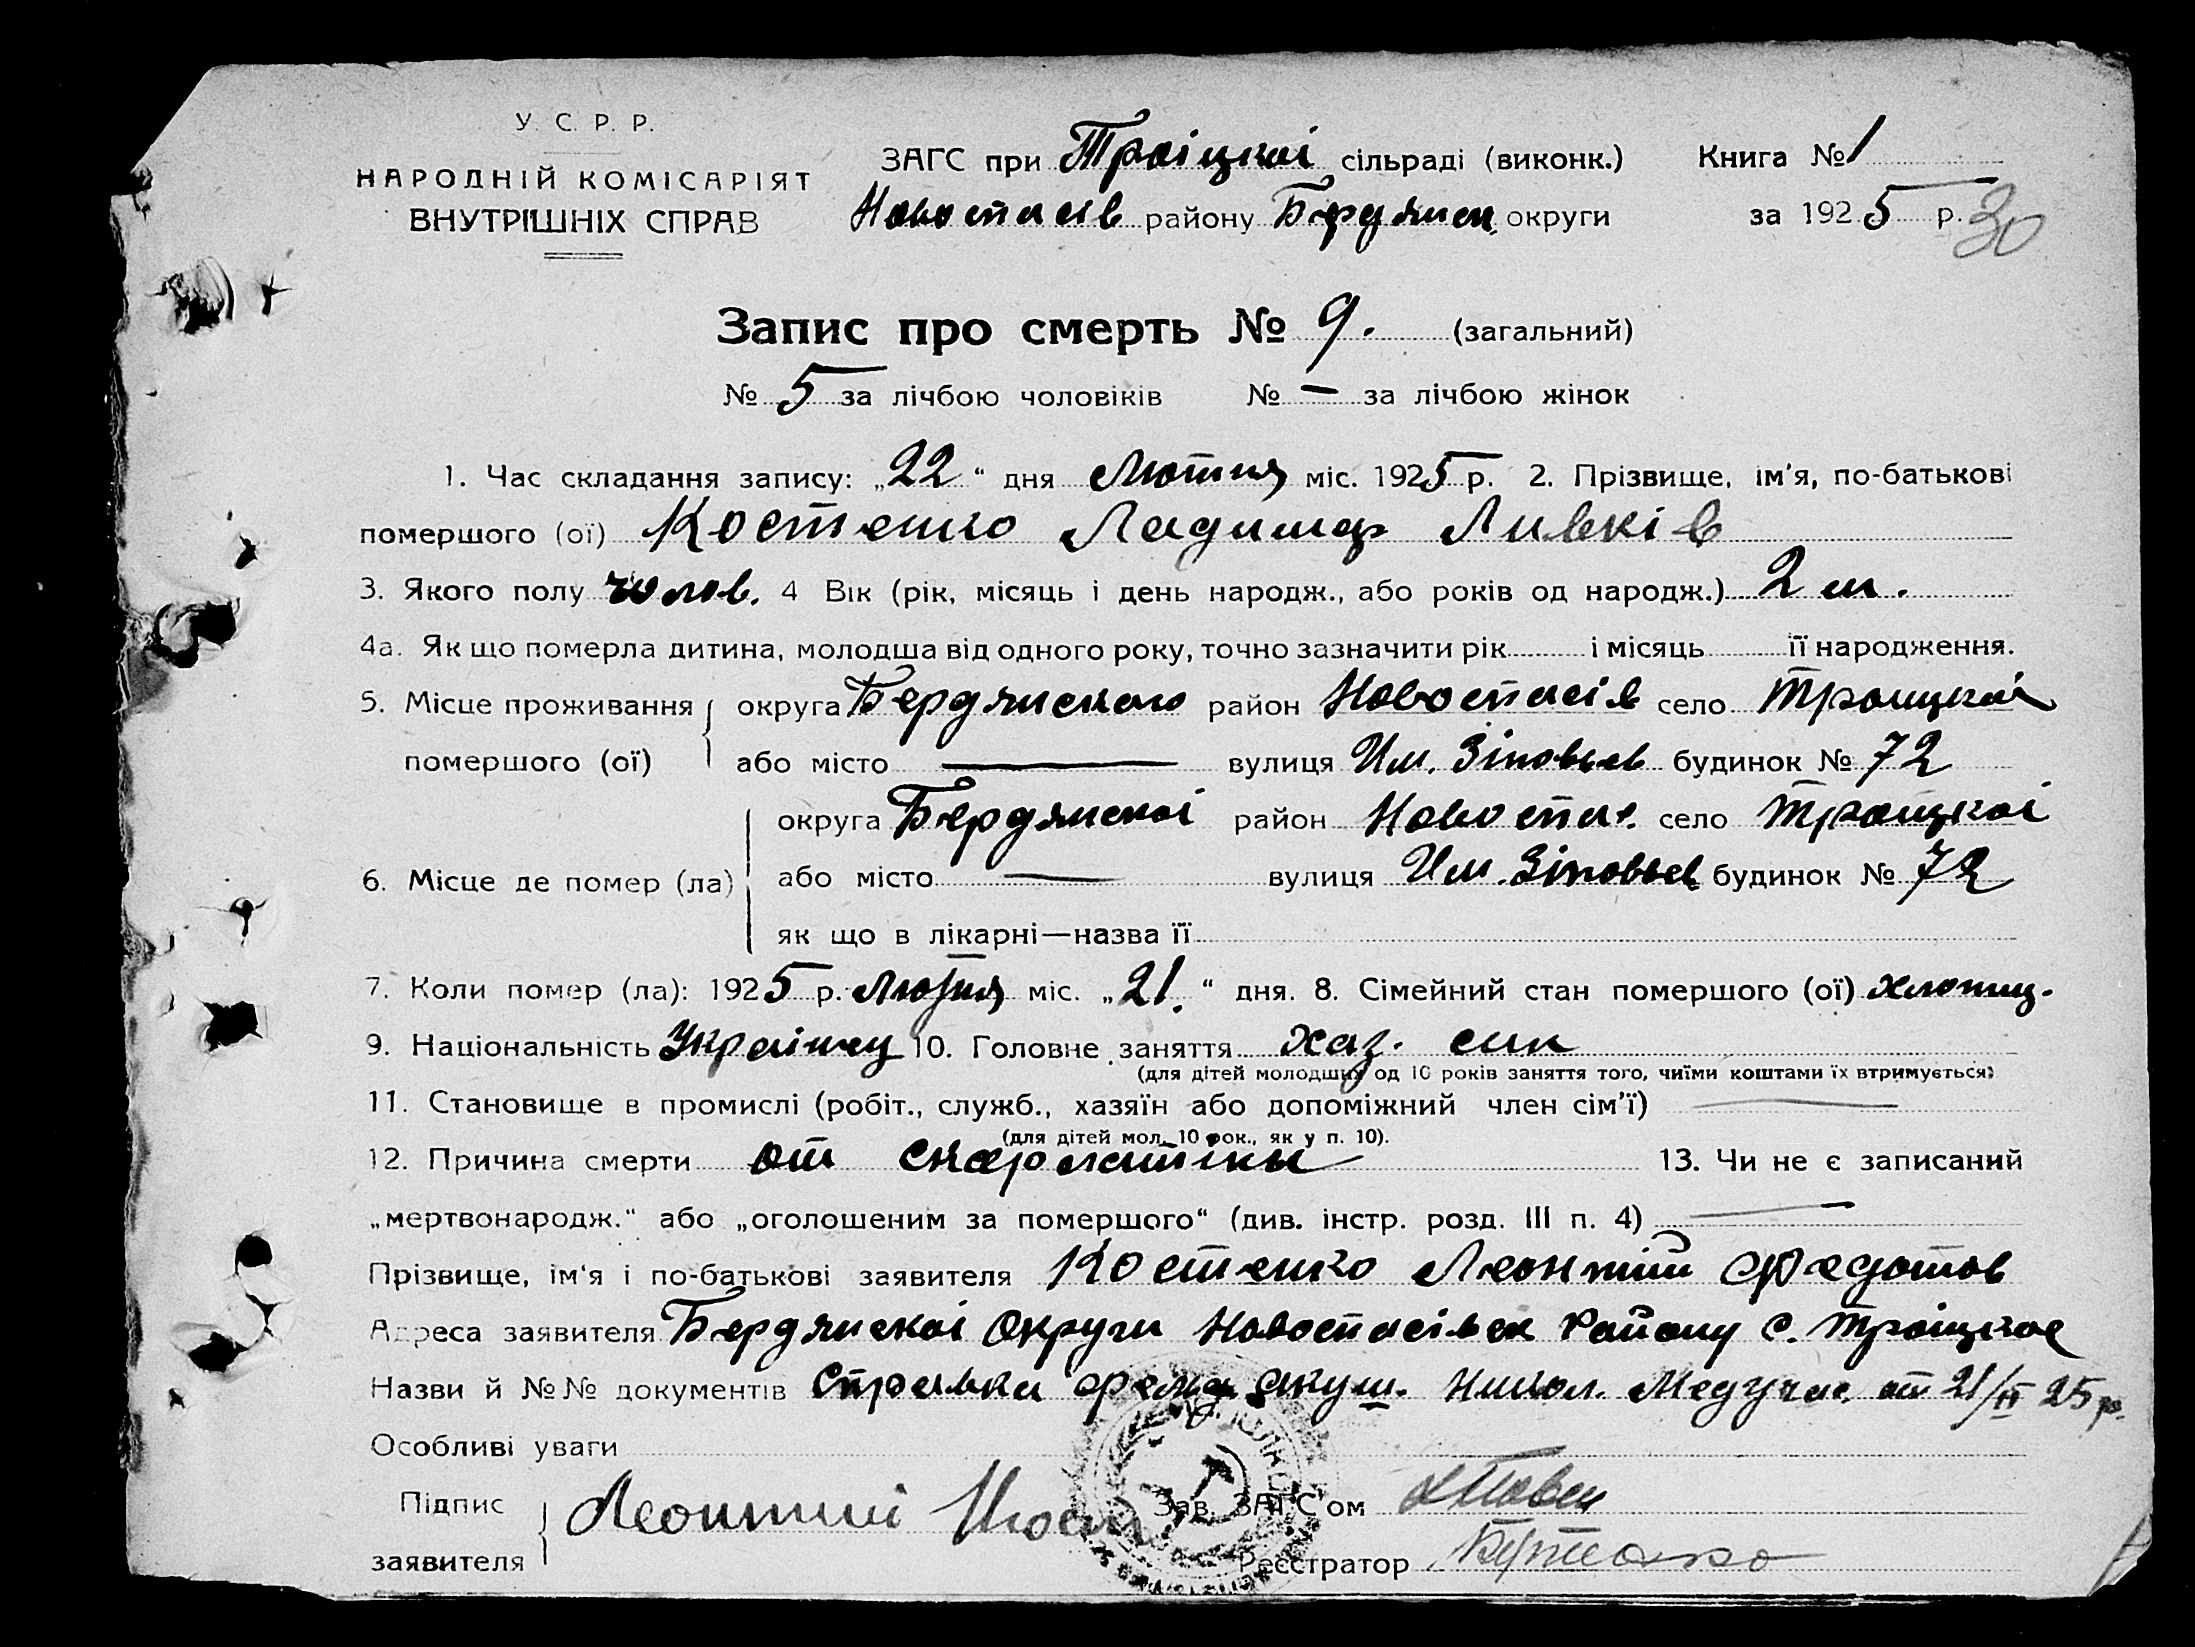 У. С. Р. Р.
НАРОДНІЙ КОМІСАРІЯТ
ВНУТРІШНІХ СПРАВ
ЗАГС при Троіцкоі сільраді (виконк.) Книга № 1
Новоспасів району Бердянск. округи за 1925 р. 30
Запис про смерть № 9. (загальний)
№ 5 за лічбою чоловіків № — за лічбою жінок
1. Час складання запису: „22“ дня Лютня міс. 1925 р. 2. Прізвище, ім'я, по-батькові
помершого (ої) Костенко
3. Якого полу чолов. 4 Вік (рік, місяць і день народж., або років од народж.) 2 м.
4а. Як що померла дитина, молодша від одного року, точно зазначити рік і місяць її народження.
5. Місце проживання помершого (ої) округа Бердянского район Новоспасів село Троицкоі
або місто — вулиця Им. Зіновьев будинок № 72
6. Місце де помер (ла) округа Бердянскоі район Новоспас. село Троицкоі
або місто — вулиця Им. Зіновьев будинок № 72
як що в лікарні—назва її
7. Коли помер (ла): 1925 р. Лютня міс. „21.“ дня. 8. Сімейний стан помершого (ої) хлопиц.
9. Національність Украінец 10. Головне заняття хаз. син
(для дітей молодших од 10 років заняття того, чиїми коштами їх втримується)
11. Становище в промислі (робіт., служб., хазяїн або допоміжний член сім'ї) —
(для дітей мол. 10 рок., як у п. 10).
12. Причина смерти от скарлатины 13. Чи не є записаний
„мертвонародж.“ або „оголошеним за помершого“ (див. інстр. розд. III п. 4) —
Прізвище, ім'я і по-батькові заявителя Костенко Леонтій Федотов
Адреса заявителя Бердянскоі Округи Новоспасівск Району с. Троіцкое
Назви й №№ документів Справка фельд. акуш. Никол. Медучас. от 21/II 25 р.
Особливі уваги
Підпис заявителя Леонтий
Зав. ЗАГС'ом
Реєстратор